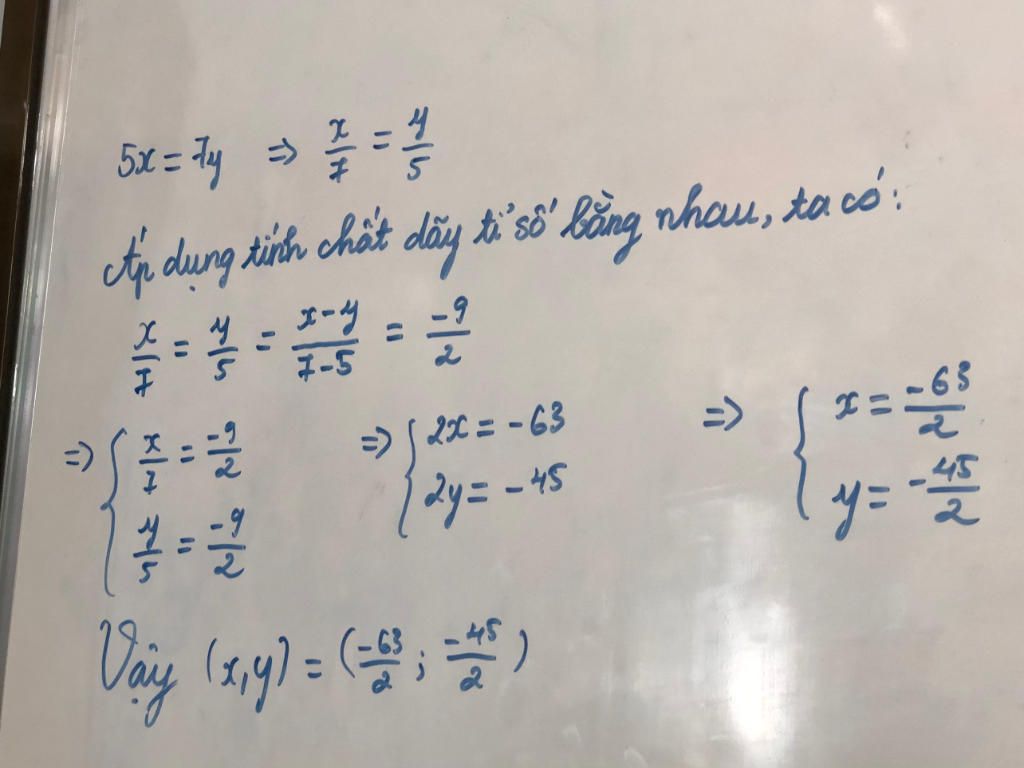 5x = 7y ⇒ x/7 = y/5
Áp dụng tính chất dãy tỉ số bằng nhau, ta có:
x/7 = y/5 = (x-y)/(7-5) = -9/2
⇒ { x/7 = -9/2 ; y/5 = -9/2 ⇒ { 2x = -63 ; 2y = -45 ⇒ { x = -63/2 ; y = -45/2
Vậy (x,y) = (-63/2; -45/2)